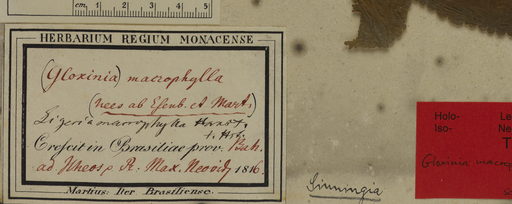 cm 1 2 3 4 5
HERBARIUM REGIUM MONACENSE
(Gloxinia) macrophylla
(Nees ab Esenb. et Mart.)
Ligeria macrophylla
Crescit in Brasiliae prov. Bah.
ad Ilheos e R. Max. Neovid. 1816.
Martius: Iter Brasiliense.
Sinningia
Holo-
Iso-
Gloxinia macrop